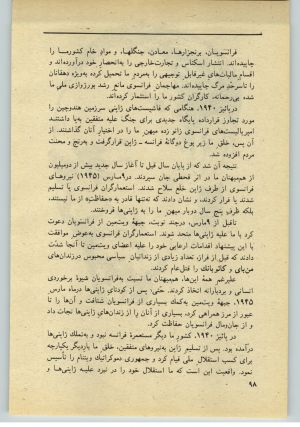 فرانسویان، برنجزارها، معادن، جنگلها، و مواد خام کشورما را
چاپیده‌اند. انتشار اسکناس و تجارت‌خارجی را به‌انحصار خود درآورده‌اند و
اقسام مالیات‌های غیرقابل توجیهی را به‌مردم ما تحمیل کرده به‌ویژه دهقانان
را تاسرحد مرگ چاپیده‌اند. مهاجمان فرانسوی مانع رشد بورژوازی ملی ما
شده بی‌رحمانه، کارگران کشور ما را استثمار کرده‌اند.
درپائیز ۱۹۴۰، هنگامی که فاشیست‌های ژاپنی سرزمین هندوچین را
مورد تجاوز قرارداده پایگاه جدیدی برای جنگ علیه متفقین به‌پا داشتند
امپریالیست‌های فرانسوی زانو زده میهن ما را در اختیار آنان گذاشتند. از
آن پس، خلق ما زیر یوغ دوگانهٔ فرانسه ـ ژاپن قرارگرفت و به‌رنج و محنت
مردم افزوده شد.
نتیجه آن شد که از پایان سال قبل تا آغاز سال جدید بیش از دومیلیون
از هم‌میهنان ما در اثر قحطی جان سپردند. در۹مارس (۱۹۴۵) نیروهای
فرانسوی از طرف ژاپن خلع سلاح شدند. استعمارگران فرانسوی یا تسلیم
شدند یا فرار کردند، و نشان دادند که نه‌تنها قادر به «حفاظت» از ما نیستند،
بلکه ظرف پنج سال دوبار میهن ما را به ژاپنی‌ها فروختند.
تاقبل از ۹مارس، درچند نوبت، جبههٔ ویتمین از فرانسویان دعوت
کرد با ما علیه ژاپنی‌ها متحد شوند. استعمارگران فرانسوی به‌عوض موافقت
با این پیشنهاد اقدامات ارعابی خود را علیه اعضای ویتمین تا آنجا شدت
دادند که قبل از فرار، تعداد زیادی از زندانیان سیاسی محبوس درزندان‌های
ین‌بای و کائوبانگ را قتل‌عام کردند.
علیرغم همهٔ این‌ها، هم‌میهنان ما نسبت به‌فرانسویان شیوهٔ برخوردی
انسانی و بردبارانه اتخاذ کردند. حتی، پس از کودتای ژاپنی‌ها درماه مارس
۱۹۴۵، جبههٔ ویتمین به‌کمک بسیاری از فرانسویان شتافت و آن‌ها را تا
عبور از مرز همراهی کرد. بسیاری از آنان را از زندان‌های ژاپنی‌ها نجات داد
و از جان‌ومال فرانسویان حفاظت کرد.
در پائیز ۱۹۴۰، کشور ما دیگر مستعمرهٔ فرانسه نبود و به‌تملک ژاپنی‌ها
درآمده بود. پس از تسلیم ژاپن به‌نیروهای متفقین، خلق ما باردیگر یکپارچه
برای کسب استقلال ملی قیام کرد و جمهوری دموکراتیک ویتنام را تأسیس
نمود. واقعیت این است که ما استقلال خود را در نبرد علیه ژاپنی‌ها و
۹۸